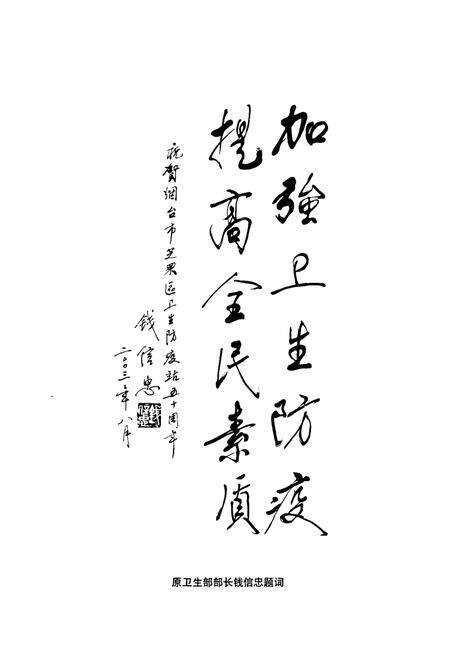 加強卫生防疫
提高全民素质
祝贺烟台市芝罘区卫生防疫站五十周年
钱信忠
二〇〇三年八月
原卫生部部长钱信忠题词